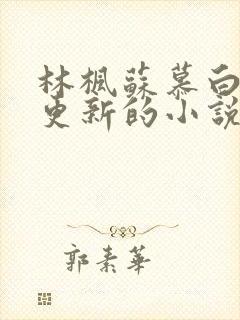 林楓蘇慕白
更新的小說
郭素華